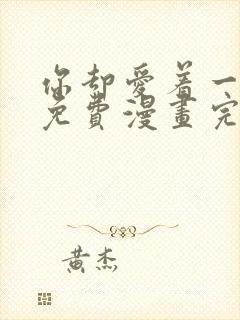 你却愛着一
免費漫畫完
黄杰